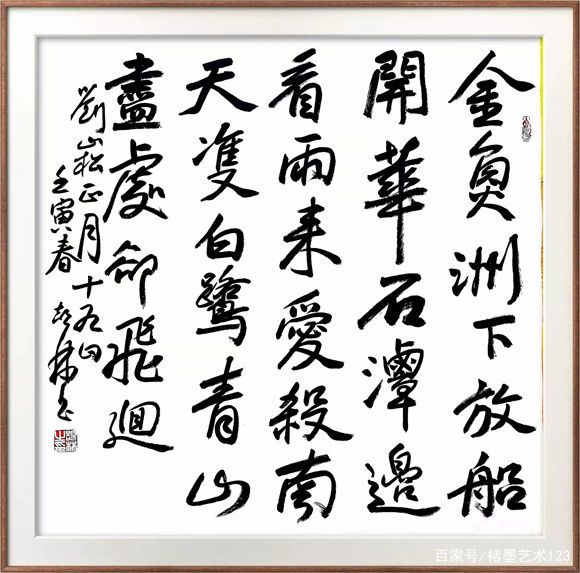 金魚洲下放船
開華石潭邊
看雨来愛殺南
天隻白鷺青山
盡處却飛迴
劉崧正月十九日
壬寅春
百家号/楮墨艺术123